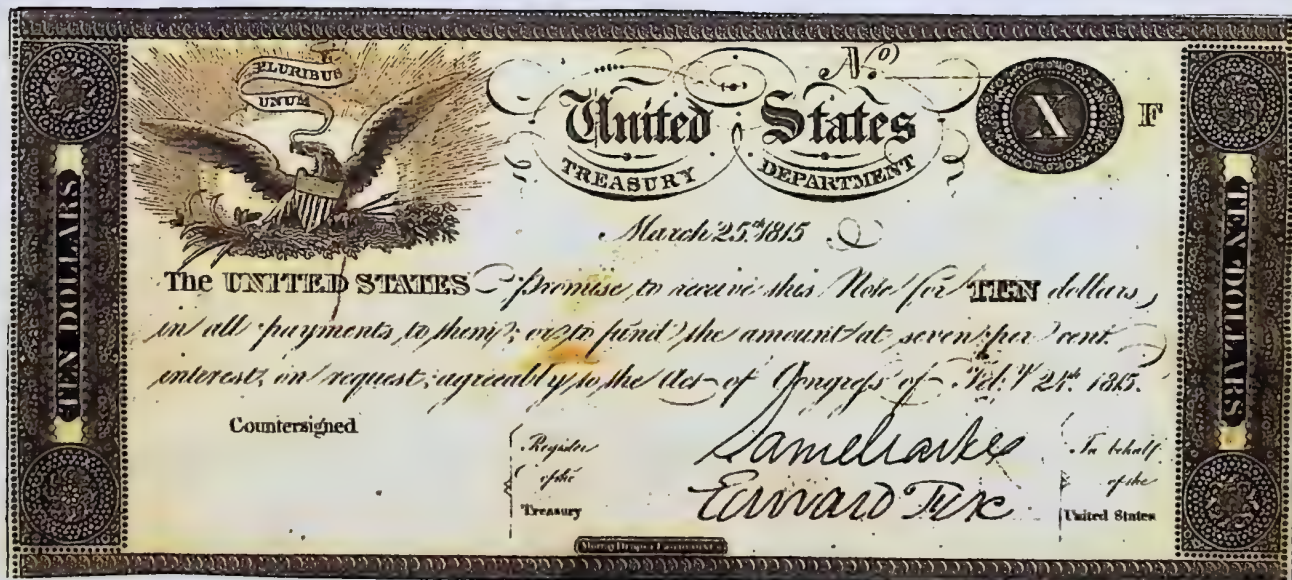 E PLURIBUS
UNUM
No.
United States
TREASURY DEPARTMENT
X
F
March 25th 1815
The UNITED STATES promise to receive this Note for TEN dollars,
in all payments to them; or to fund the amount at seven per cent.
interest, on request, agreeably to the Act of Congress of Feb.y 24th. 1815.
Countersigned
Register
of the
Treasury
Edward Fox
In behalf
of the
United States
TEN DOLLARS
TEN DOLLARS
Murray Draper Fairman & Co